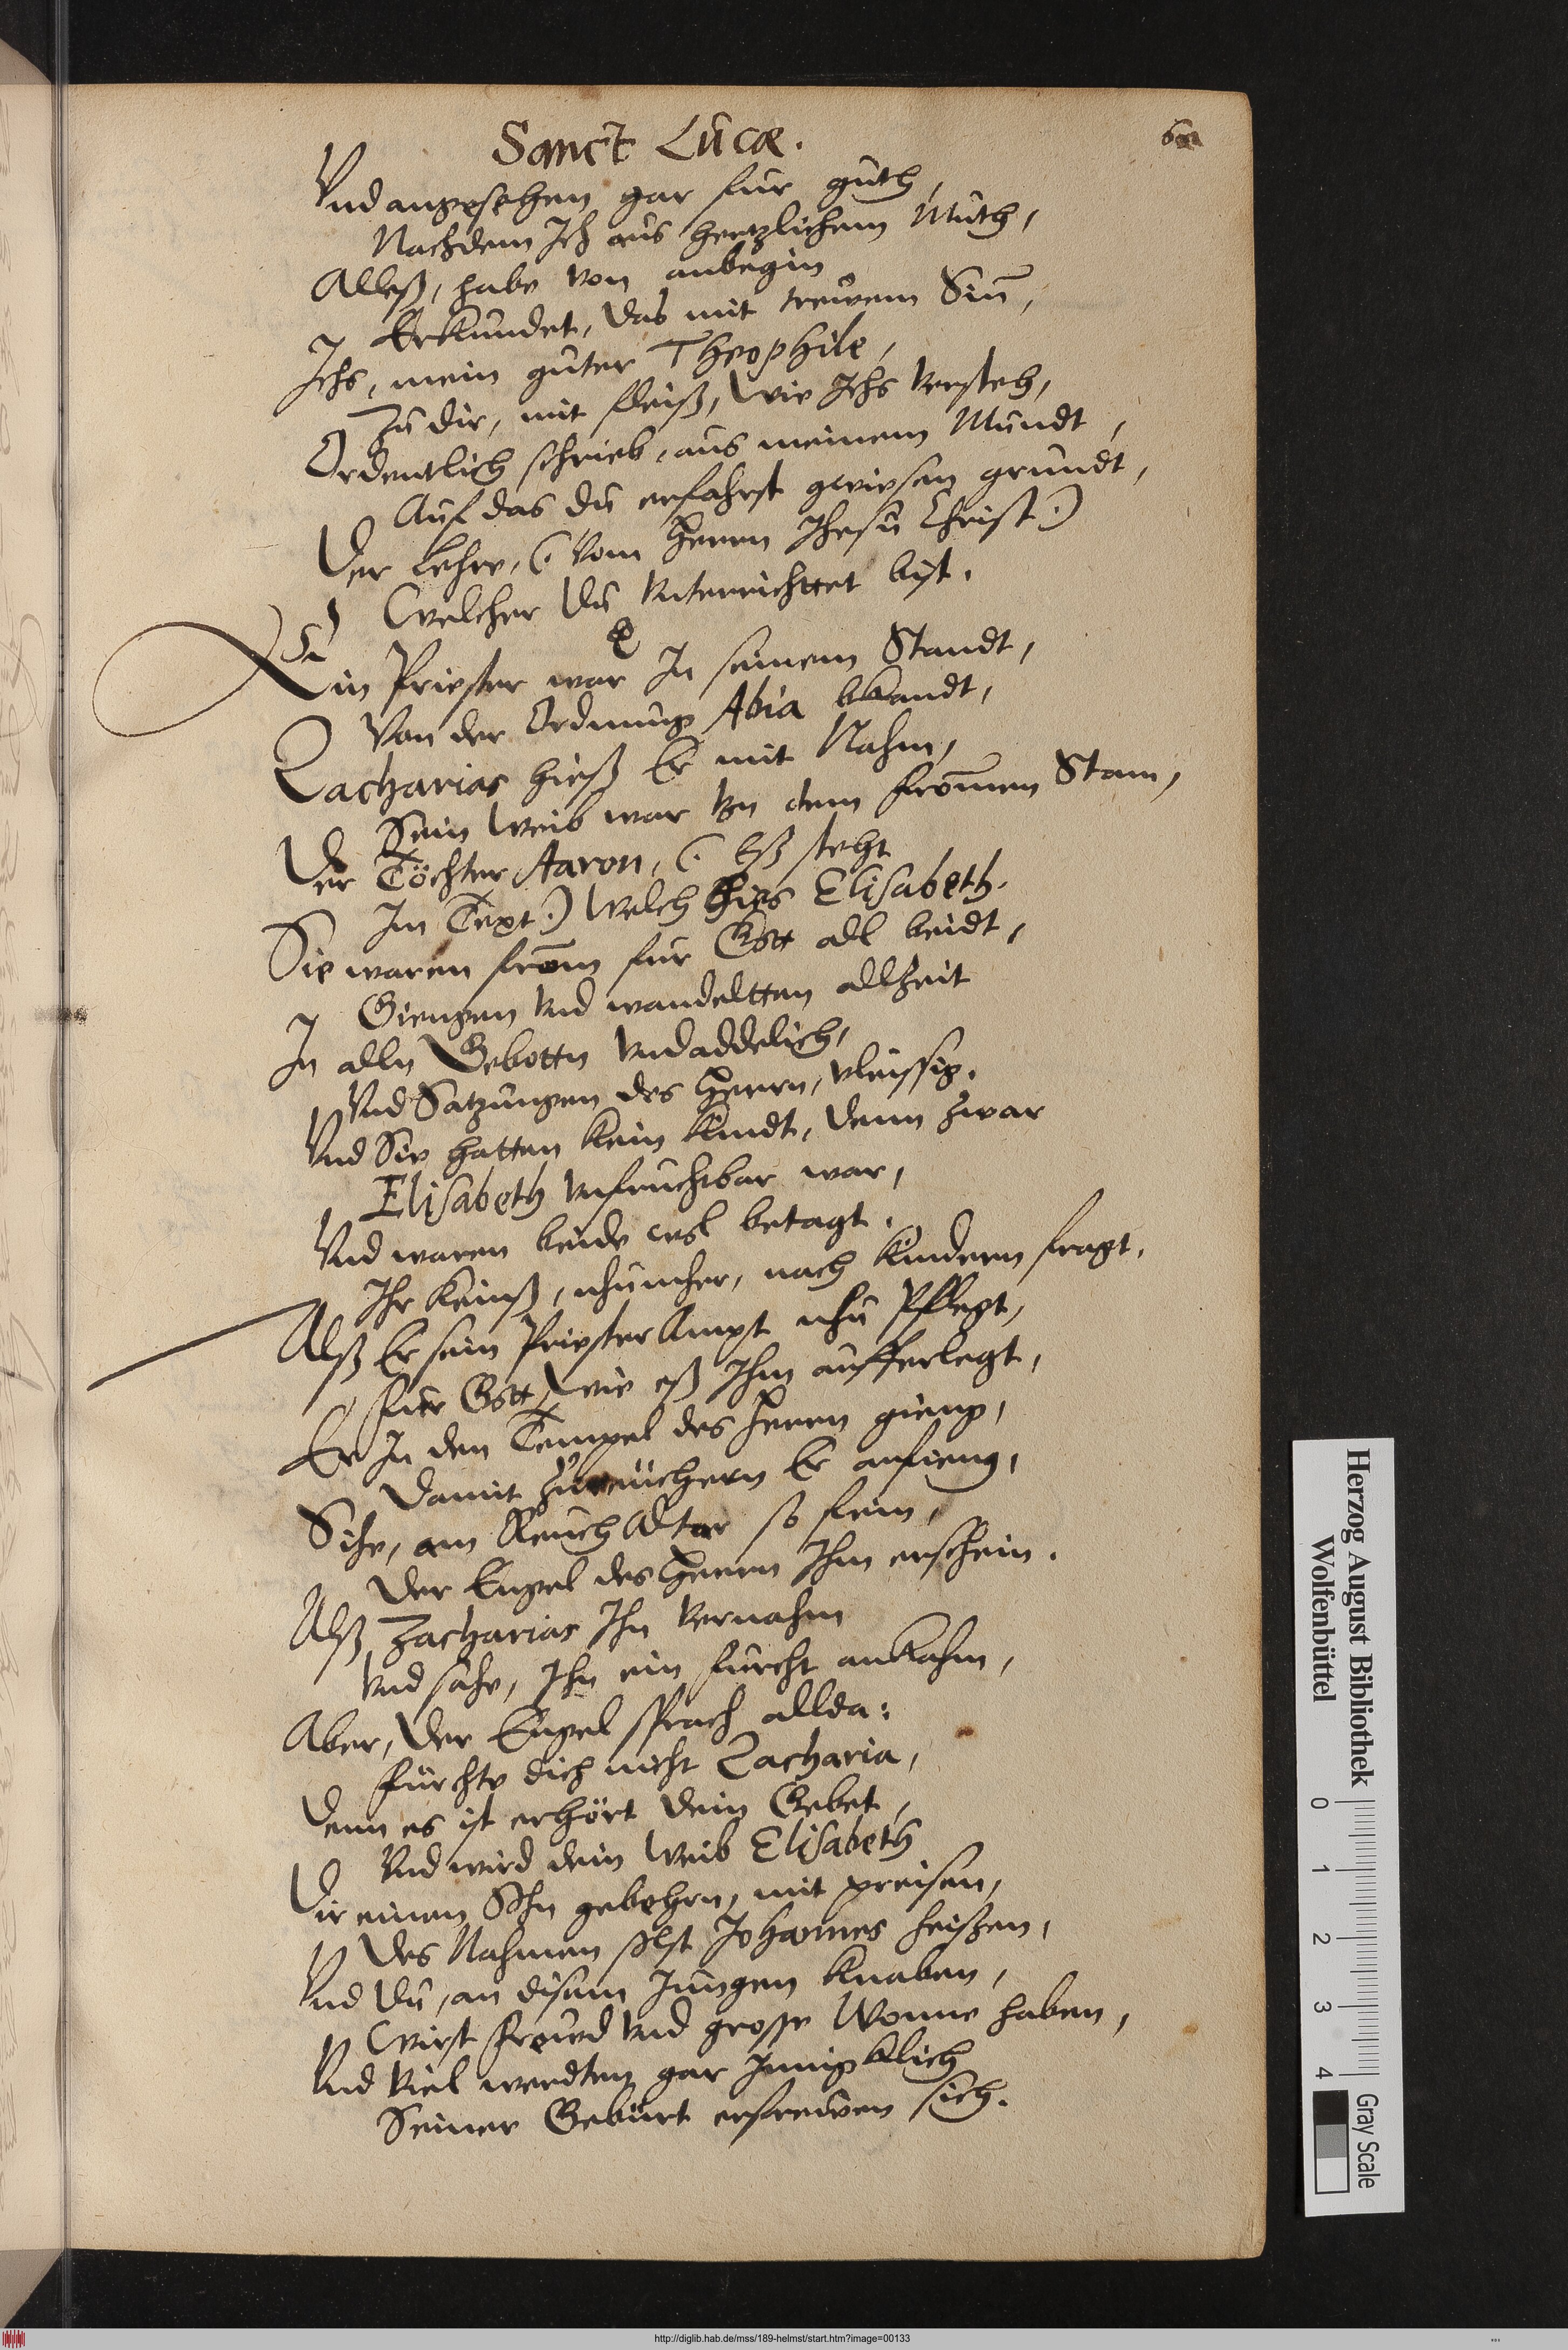 Sanct Lucæ.
Vnd angesehen gar fur guth,
Nachdem Ich aus hertzlichem Muth,
Alleß, habe von anbegin
Erkundet, das mit trewem Siñ,
Ichs, mein guter Theophile,
Zu dir, mit fleiß, wie Ichs versteh,
Ordentlich schrieb, aus meinem Mundt,
Auf das du erfahrst gwiesen grundt,
Der Lehre, (. vom Herrn Jhesu Christ .)
Welcher du vnterrichttet bist.
Ein Priester war In seinem Standt,
Von der Ordnung Abia bkandt,
Zacharias hieß Er mit Nahm,
Sein Weib war vn dem from̄en Stam,
Der Töchter Aaron, (. Eß steht
Im Text .) Welch hies Elisabeth.
Sie waren from̄ fur Gott all beidt,
Giengen vnd wandeltten allzeit
In alln Gebottn vndaddelich,
Vnd Satzungen des Herrn, vleissig.
Vnd Sie hatten kein kindt, denn zwar
Elisabeth vnfruchtbar war,
Vnd waren beide wol betagt.
Ihr keinß, nhumher, nach kindern fragt.
Alß Er sein Priester Ampt nhu Pflegt,
fur Gott, wie eß Ihm aufferlegt,
Er In den Tempel des Herrn gieng,
Damit zu reuchern Er anfieng,
Sihe, am Reuch Altar so fein,
Der Engel des Herrn Ihm erschein.
Alß Zacharias Ihn vernahm
Vnd sahe, Ihn ein furcht ankahm,
Aber, der Engel sprach allda:
fürchte dich nicht Zacharia,
Denn es ist erhört dein Gebet,
Vnd wird dein Weib Elisabeth
Dir einen Sohn gebehrn, mit preisen,
Des Nahmen solst Johannes heißen,
Vnd du, an disem Jungen knaben,
Wirst freud vnd grosse Wonne haben,
Vnd viel werdten gar Innigklich
Seiner Geburt erfrewen sich.
Herzog August Bibliothek
Wolfenbüttel
0 1 2 3 4
Gray Scale
http://diglib.hab.de/mss/189-helmst/start.htm?image=00133